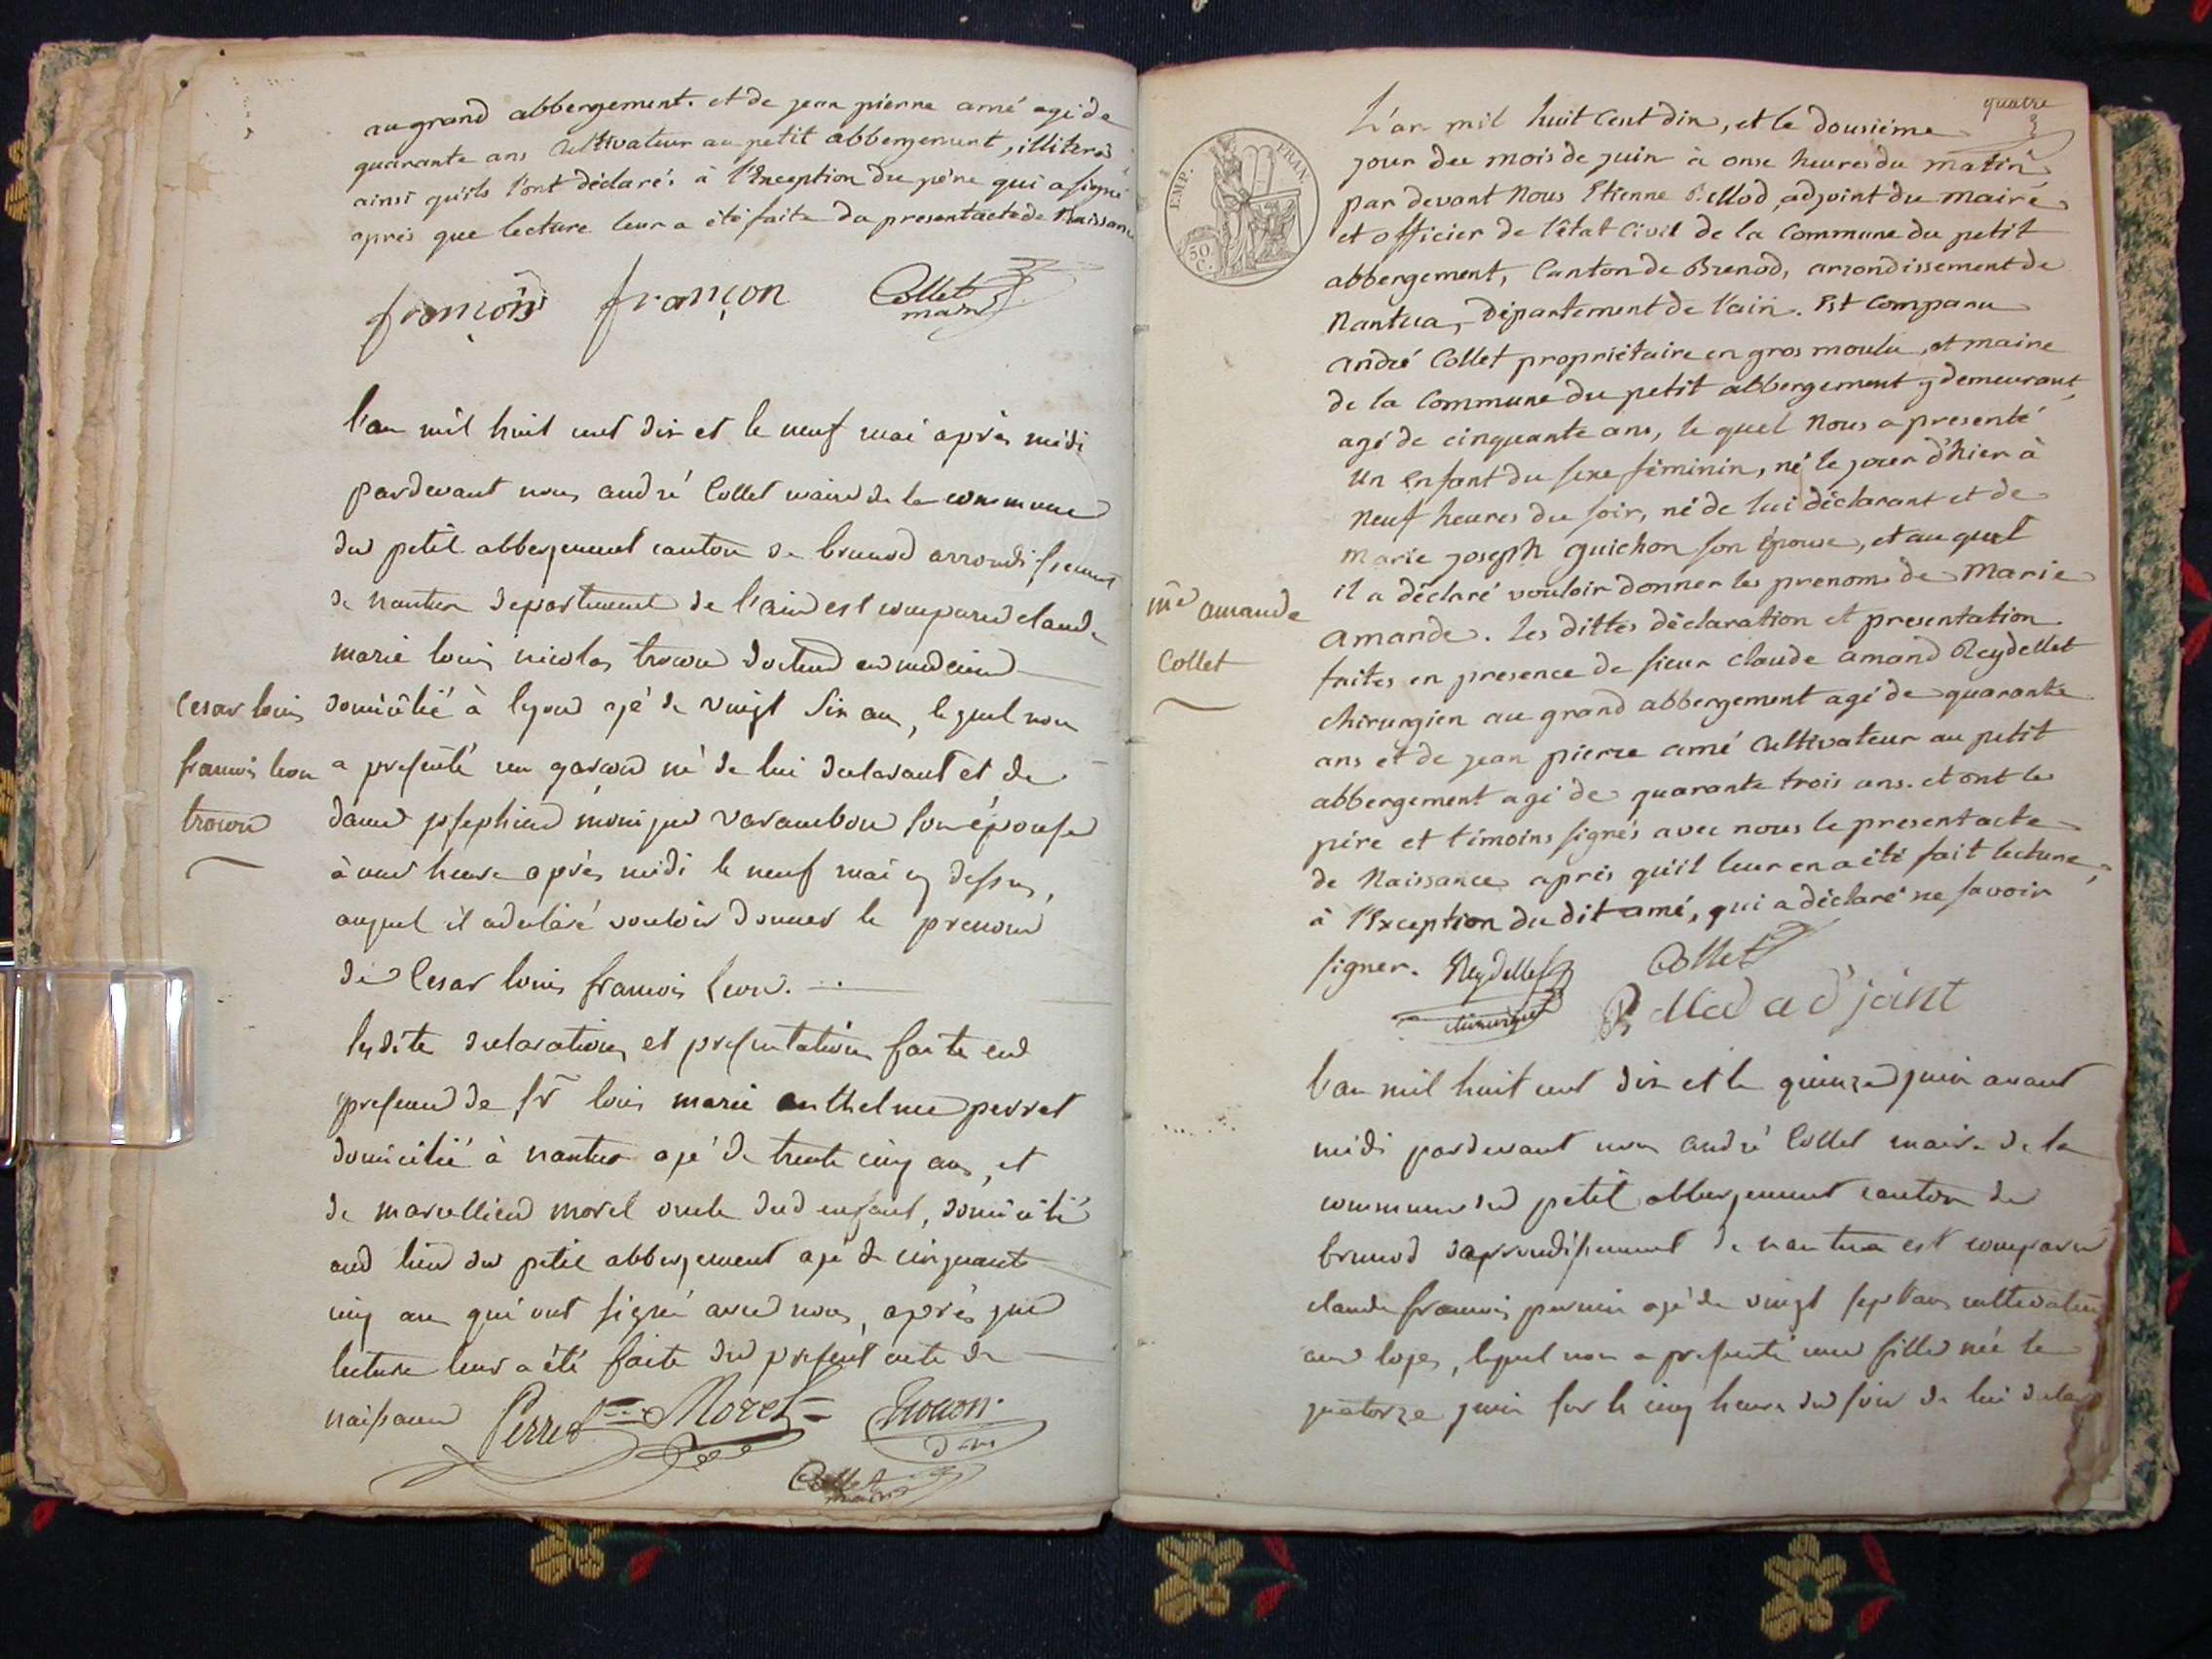 au grand abbergement. et de jean piérre amé agé de
quarante ans Cultivateur au petit abbergement, illiterés
ainsi qu'ils l'ont déclaré. à l'Exception du pére qui a signé
aprés que lecture leur a été faite du present acte de Naissance
françois françon Collet
maire
l'an mil huit cent dix et le neuf mai après midi
pardevant nous andré Collet maire de la commune
du petit abbergement canton de brenod arrondissement
de nantua departement de l'ain est comparu claude
marie louis nicolas trocon docteur en medecine
Cesar louis
françois leon
trocon
domicilié à lyon agé de vingt six ans, lequel nous
a presenté un garçon né de lui declarant et de
dame josephine monique varambon son épouse
à une heure après midi le neuf mai cy dessus,
auquel il a declaré vouloir donner le prenom
de Cesar louis françois Leon.
lesdite declaration et presentation faite en
presence de sr louis marie anthelme perret
domicilié à nantua agé de trente cinq ans, et
de marcellien morel oncle dud enfant, domicilié
aud lieu du petit abbergement agé de cinquante
cinq ans qui ont signé avec nous, après que
lecture leur a été faite du present acte de
naissance Perret Morel Trocon.
d m
Collet
maire
quatre
EMP. FRAN.
50
C.
L'an mil huit Cent dix, et le dousiéme
jour du mois de juin à onse heures du matin
par devant Nous Etienne Bellod, adjoint du maire
et officier de l'état Civil de la Commune du petit
abbergement, Canton de Brenod, arrondissement de
Nantua, Département de l'ain. Est Comparu
andré Collet propriétaire en gros moulu, et maire
de la Commune du petit abbergement y demeurant,
agé de cinquante ans, le quel Nous a presenté
un Enfant du sexe féminin, né le jour d'hier à
neuf heures du soir, né de lui déclarant et de
marie joseph guichon son épouse, et au quel
il a déclaré vouloir donner les prenoms de Marie
mie amande
Collet
amande. les dittes déclaration et presentation
faites en presence de sieur claude amand Reydellet
chirurgien au grand abbergement agé de quarante
ans et de jean pierre amé Cultivateur au petit
abbergement agé de quarante trois ans. et ont les
pére et témoins signés avec nous le present acte
de Naissance aprés qu'il leur en a été fait lecture,
à l'Exception du dit amé, qui a déclaré ne savoir
signer. Reydellet Collet
chirurgien Bellod adjoint
l'an mil huit cent dix et le quinze juin avant
midi pardevant nous andré Collet maire de la
commune du petit abbergement canton de
brenod d'arrondissement de nantua est comparu
claude françois agé de vingt sept ans cultivateur
aux loges, lequel nous a presenté une fille née le
quatorze juin sur les cinq heures du soir de lui